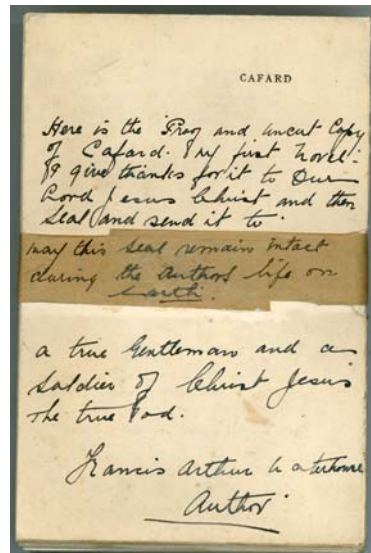 CAFARD
Here is the Proof and uncut Copy
of Cafard. My first Novel.
I give thanks for it to Our
Lord Jesus Christ and then
Seal and send it to
may this seal remain intact
during the Authors life on
Earth.
a true Gentleman and a
Soldier of Christ Jesus
The true God.
Francis Arthur Waterhouse
Author